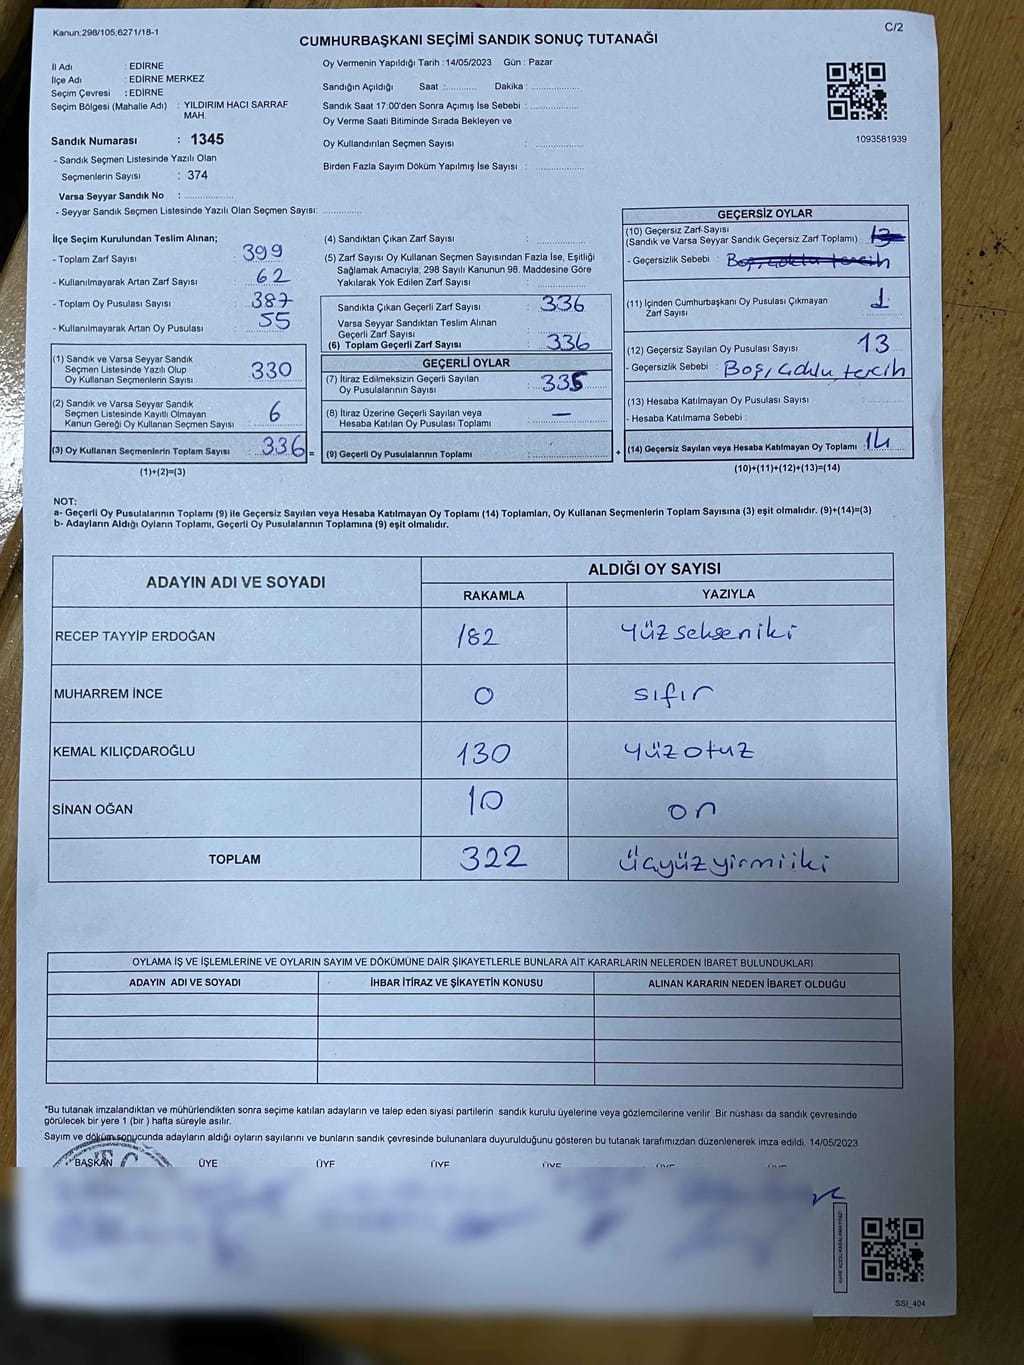 Kanun;298/105,6271/18-1
C/2
CUMHURBAŞKANI SEÇİMİ SANDIK SONUÇ TUTANAĞI
İl Adı : EDİRNE
İlçe Adı : EDİRNE MERKEZ
Seçim Çevresi : EDİRNE
Seçim Bölgesi (Mahalle Adı) : YILDIRIM HACI SARRAF
MAH.
Sandık Numarası : 1345
- Sandık Seçmen Listesinde Yazılı Olan
Seçmenlerin Sayısı : 374
Varsa Seyyar Sandık No : ...............
- Seyyar Sandık Seçmen Listesinde Yazılı Olan Seçmen Sayısı: ............
Oy Vermenin Yapıldığı Tarih :14/05/2023 Gün : Pazar
Sandığın Açıldığı Saat :.......... Dakika :...............
Sandık Saat 17:00'den Sonra Açımış İse Sebebi : ...............
Oy Verme Saati Bitiminde Sırada Bekleyen ve
Oy Kullandırılan Seçmen Sayısı : ...............
Birden Fazla Sayım Döküm Yapılmış İse Sayısı : ...............
1093581939
İlçe Seçim Kurulundan Teslim Alınan;
- Toplam Zarf Sayısı : 399
- Kullanılmayarak Artan Zarf Sayısı : 62
- Toplam Oy Pusulası Sayısı : 387
- Kullanılmayarak Artan Oy Pusulası : 55
(1) Sandık ve Varsa Seyyar Sandık
Seçmen Listesinde Yazılı Olup
Oy Kullanan Seçmenlerin Sayısı : 330
(2) Sandık ve Varsa Seyyar Sandık
Seçmen Listesinde Kayıtlı Olmayan
Kanun Gereği Oy Kullanan Seçmen Sayısı : 6
(3) Oy Kullanan Seçmenlerin Toplam Sayısı : 336 =
(1)+(2)=(3)
(4) Sandıktan Çıkan Zarf Sayısı : ...............
(5) Zarf Sayısı Oy Kullanan Seçmen Sayısından Fazla İse, Eşitliği
Sağlamak Amacıyla; 298 Sayılı Kanunun 98. Maddesine Göre
Yakılarak Yok Edilen Zarf Sayısı : ...............
Sandıkta Çıkan Geçerli Zarf Sayısı : 336
Varsa Seyyar Sandıktan Teslim Alınan
Geçerli Zarf Sayısı
(6) Toplam Geçerli Zarf Sayısı : 336
GEÇERLİ OYLAR
(7) İtiraz Edilmeksizin Geçerli Sayılan
Oy Pusulalarının Sayısı : 335
(8) İtiraz Üzerine Geçerli Sayılan veya
Hesaba Katılan Oy Pusulası Toplamı : —
(9) Geçerli Oy Pusulalarının Toplamı : ............... +
GEÇERSİZ OYLAR
(10) Geçersiz Zarf Sayısı
(Sandık ve Varsa Seyyar Sandık Geçersiz Zarf Toplamı) : 13
- Geçersizlik Sebebi : Boş, çoklu tercih
(11) İçinden Cumhurbaşkanı Oy Pusulası Çıkmayan
Zarf Sayısı : 1
(12) Geçersiz Sayılan Oy Pusulası Sayısı : 13
- Geçersizlik Sebebi : Boş, çoklu tercih
(13) Hesaba Katılmayan Oy Pusulası Sayısı : ...........
- Hesaba Katılmama Sebebi :
(14) Geçersiz Sayılan veya Hesaba Katılmayan Oy Toplamı : 14
(10)+(11)+(12)+(13)=(14)
NOT:
a- Geçerli Oy Pusulalarının Toplamı (9) ile Geçersiz Sayılan veya Hesaba Katılmayan Oy Toplamı (14) Toplamları, Oy Kullanan Seçmenlerin Toplam Sayısına (3) eşit olmalıdır. (9)+(14)=(3)
b- Adayların Aldığı Oyların Toplamı, Geçerli Oy Pusulalarının Toplamına (9) eşit olmalıdır.
ADAYIN ADI VE SOYADI
ALDIĞI OY SAYISI
RAKAMLA YAZIYLA
RECEP TAYYİP ERDOĞAN 182 yüzsekseniki
MUHARREM İNCE 0 sıfır
KEMAL KILIÇDAROĞLU 130 yüzotuz
SİNAN OĞAN 10 on
TOPLAM 322 üçyüzyirmiiki
OYLAMA İŞ VE İŞLEMLERİNE VE OYLARIN SAYIM VE DÖKÜMÜNE DAİR ŞİKAYETLERLE BUNLARA AİT KARARLARIN NELERDEN İBARET BULUNDUKLARI
ADAYIN ADI VE SOYADI İHBAR İTİRAZ VE ŞİKAYETİN KONUSU ALINAN KARARIN NEDEN İBARET OLDUĞU
*Bu tutanak imzalandıktan ve mühürlendikten sonra seçime katılan adayların ve talep eden siyasi partilerin sandık kurulu üyelerine veya gözlemcilerine verilir. Bir nüshası da sandık çevresinde
görülecek bir yere 1 (bir ) hafta süreyle asılır.
Sayım ve döküm sonucunda adayların aldığı oyların sayılarını ve bunların sandık çevresinde bulunanlara duyurulduğunu gösteren bu tutanak tarafımızdan düzenlenerek imza edildi. 14/05/2023
BAŞKAN ÜYE ÜYE ÜYE ÜYE ÜYE ÜYE
SSI_404